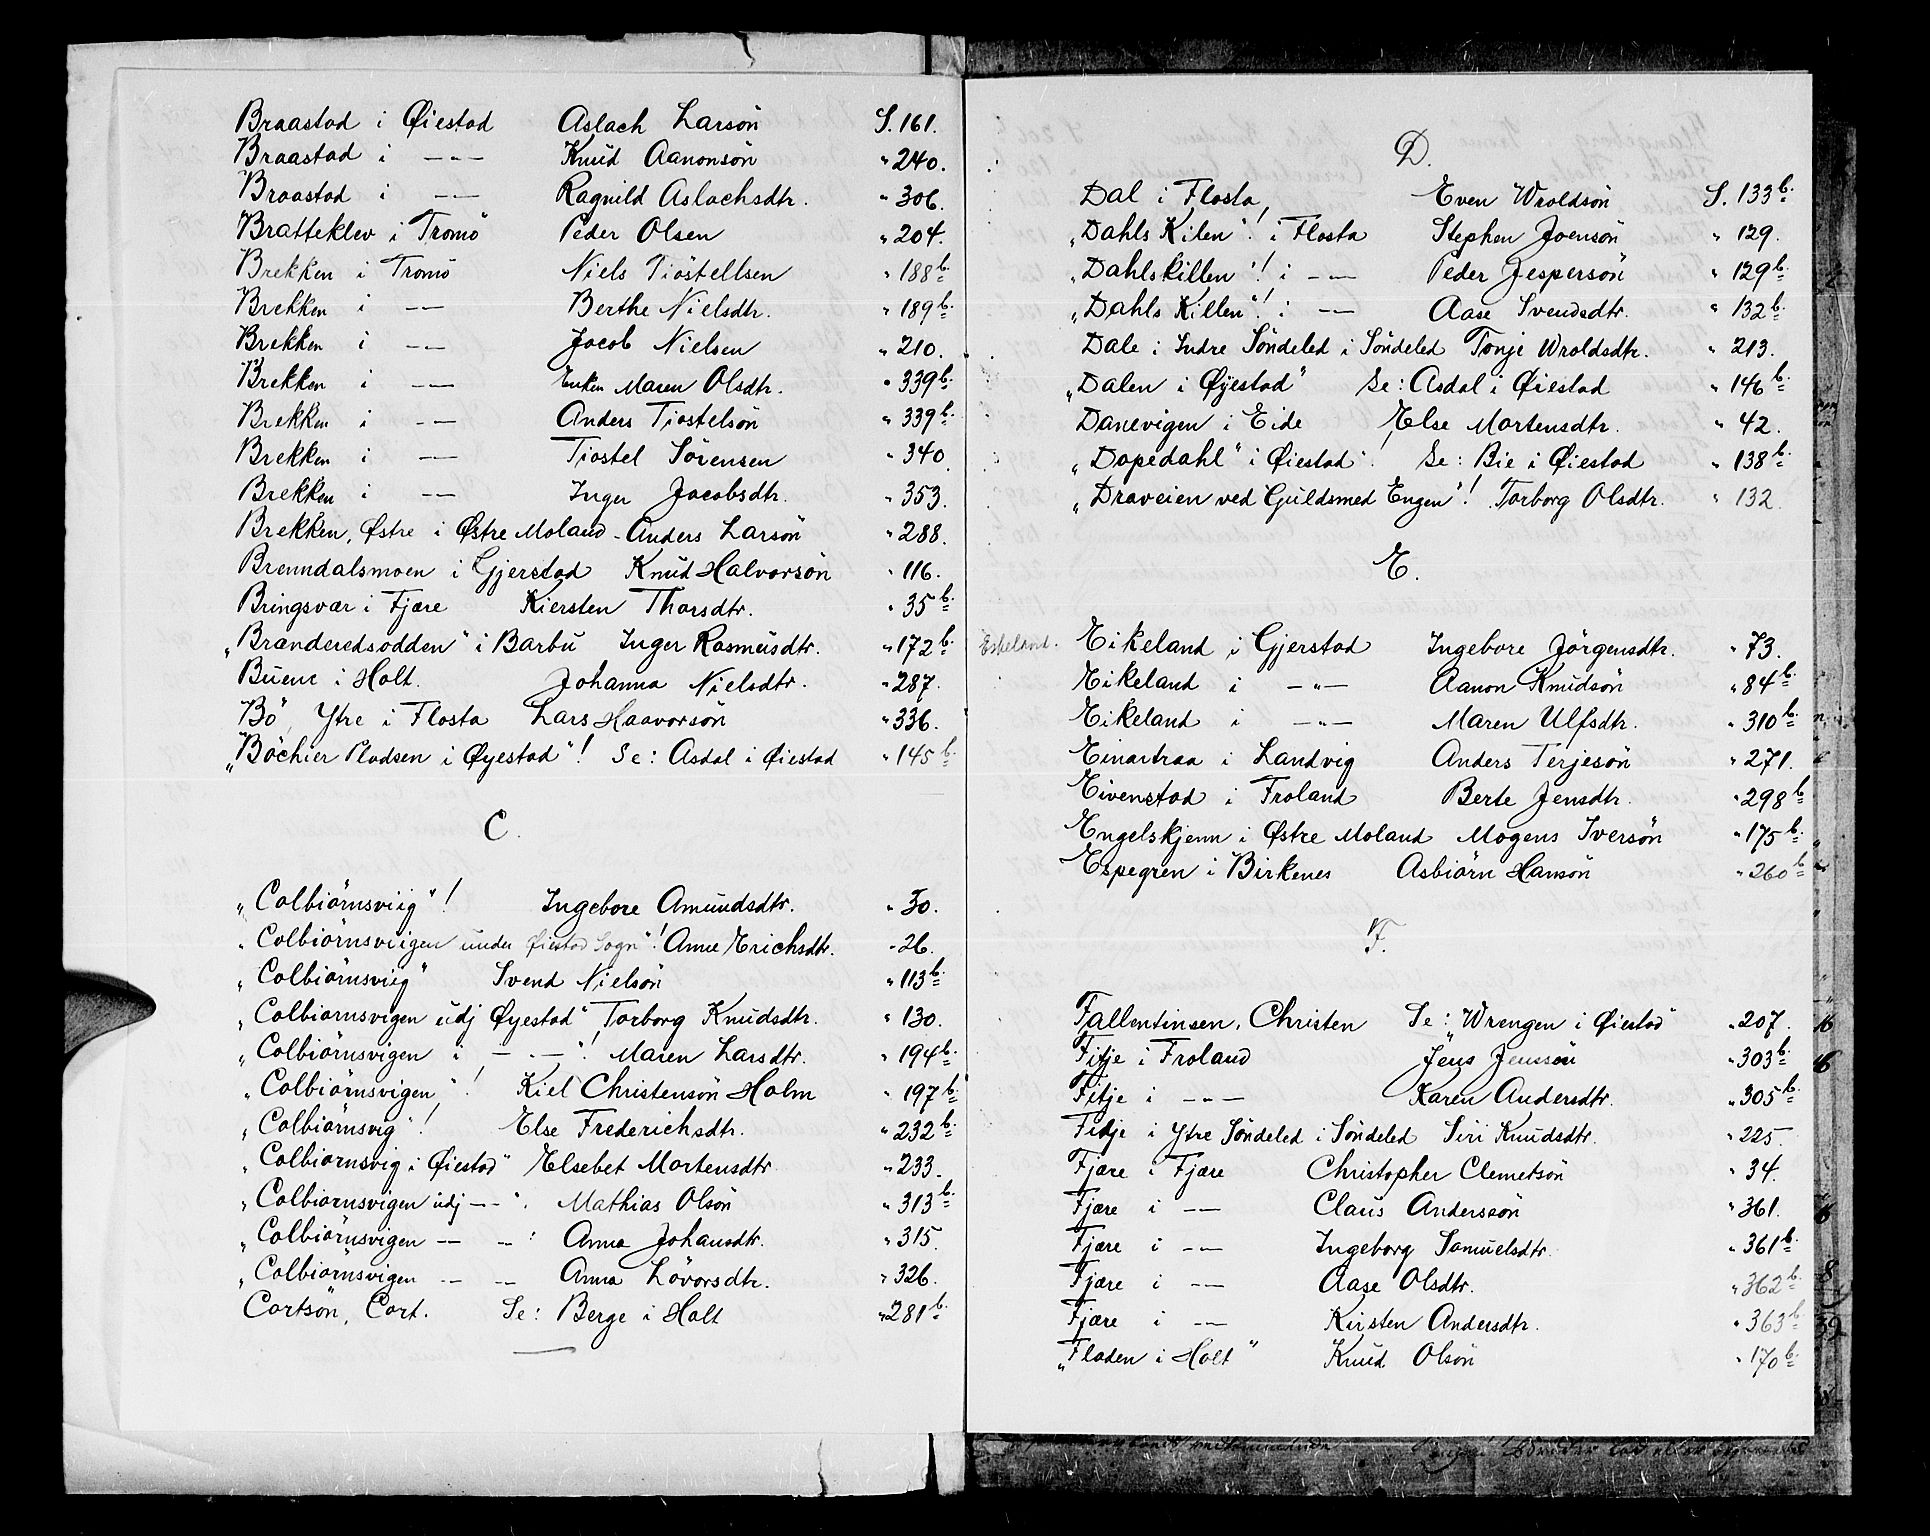 Braastad i Øiestad Aslach Larsön S. 161.
Braastad i -"- Knud Aanonsön " 240.
Braastad i -"- Ragnild Aslachsdtr. " 306.
Bratteklev i Tromö Peder Olsen " 204.
Brekken i Tromö Niels Tiöstellsen " 188 b.
Brekken i -"- Berthe Nielsdtr. " 189 b.
Brekken i -"- Jacob Nielsen " 210.
Brekken i -"- Enken Maren Olsdtr. " 339 b.
Brekken i -"- Anders Tiostelsön " 339 b.
Brekken i -"- Tiostel Sörensen " 340
Brekken i -"- Inger Jacobsdtr. " 353.
Brekken, Østre i Østre Moland - Anders Larsön " 288.
Brenndalsmoen i Gjerstad Knud Halvorsön " 116.
Bringsvær i Fjære Kiersten Thorsdtr. " 35 b.
"Brænderedsodden" i Barbu Inger Rasmusdtr. " 172 b.
Buene i Holt. Johanna Nielsdtr. " 287.
Bö, Ytre i Flosta Lars Haavorsön " 336.
"Böchier Pladsen i Øyestad"! Se: Asdal i Øiestad " 145 b.
C.
"Colbiörnsviig"! Ingebore Amundsdtr. " 30.
"Colbiörnsviigen under Øiestad Sogn"! Anne Erichsdtr. " 26.
"Colbiörnsviig" Svend Nielsön " 113 b.
"Colbiörnsvigen udj Øyestad" Torborg Knudsdtr. " 130.
"Colbiörnsvigen i -"-"! Maren Larsdtr. " 194 b.
"Colbiörnsvigen"! Kiel Christensön Holm " 197 b.
"Colbiörnsvig"! Else Frederichsdtr. " 232 b.
"Colbiörnsvig i Øiestad" Elsebet Mortensdtr " 233.
"Colbiörnsvigen udj -"-". Mathias Olsön " 313 b.
"Colbiörnsvigen -"- -" Anna Johansdtr. " 315.
"Colbiörnsvigen -"- -"- Anna Lövorsdtr. " 326.
Cortsön, Cort. Se: Berge i Holt " 281 b.
D.
Dal i Flosta, Even Wroldsön S. 133 b.
"Dahls Kilen"! i Flosta Stephen Joensön " 129.
"Dahlskillen"! i -"- Peder Jespersön " 129 b.
"Dahls Killen"! i -"- Aase Svendsdtr. " 132 b.
Dale i Indre Söndeled i Söndeled Tonje Wroldsdtr. " 213.
"Dalen i Øyestad" Se: Asdal i Øiestad " 146 b.
Danevigen i Eide Else Mortensdtr. " 42.
"Dopedahl" i Øiestad! Se: Bie i Øiestad " 138 b.
"Draveien ved Guldsmed Engen"! Torborg Olsdtr. " 132.
E.
Eskeland. Eikeland i Gjerstad Ingebore Jörgensdtr. " 73.
Eikeland i -"- Aanon Knudsön " 84 b.
Eikeland i -"- Maren Ulfsdtr. " 310 b.
Einartraa i Landvig Anders Terjesön " 271.
Eivenstad i Froland Berte Jensdtr. " 298 b
Engelskjenn i Østre Moland Mogens Iversön " 175 b.
Espegren i Birkenes Asbiörn Hansön " 260 b
F.
Fallentinsen, Christen Se: "Wrengen i Øiestad" " 207.
Fitje i Froland Jens Jenssön " 303 b.
Fitje i -"- Karen Andersdtr. " 305 b.
Fidje i Ytre Söndeled i Söndeled Siri Knudsdtr. " 225.
Fjære i Fjære Christopher Clemetsön " 34.
Fjære i -"- Claus Anderssön " 361.
Fjære i -"- Ingeborg Samuelsdtr. " 361 b.
Fjære i -"- Aase Olsdtr. " 362 b.
Fjære i -"- Kirsten Andersdtr. " 363 b.
"Floden i Holt" Knud Olsön " 170 b.